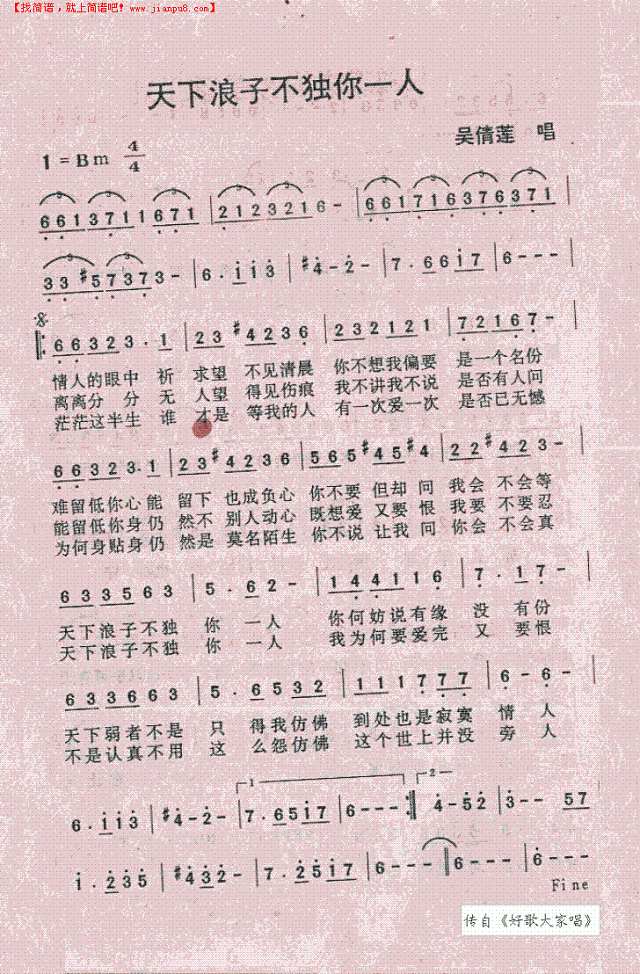 【找简谱，就上简谱吧！www.jianpu8.com】
天下浪子不独你一人
吴倩莲 唱
1=Bm 4/4
6 6 1 3 7 1 1 6 7 1 | 2 1 2 3 2 1 6 - | 6 6 1 7 1 6 7 6 7 6 3 7 1 |
3 3 #5 7 3 7 3 - | 6 . 1 1 3 | #4 - 2 - | 7 . 6 6 1 7 | 6 - - - |
6 6 3 2 3 3 . 1 | 2 3 #4 2 3 6 | 3 2 2 1 2 1 | 7 2 1 6 7 - |
情人的眼中 祈 求望 不见清晨 你不想我偏要 是一个名份
离离分 分 无 人望 得见伤痕 我不讲我不说 是否有人问
茫茫这半生 谁 才是 等我的人 有一次爱一次 是否已无憾
6 6 3 2 3 . 1 | 2 3 #4 2 3 6 | 5 6 5 #4 5 #4 | 2 2 #4 2 3 - |
难留低你心能 留下 也成负心 你不要 但却 问 我会 不会等
能留低你身仍 然不 别人动心 既想爱 又要 恨 我要 不要忍
为何身贴身仍 然是 莫名陌生 你不说 让我 问 你会 不会真
6 3 3 5 6 3 | 5 . 6 2 - | 1 4 4 1 1 6 | 7 . 1 7 - |
天下浪子不独 你 一人 你何妨说有缘 没 有份
天下浪子不独 你 一人 我为何要爱完 又 要恨
6 3 3 6 6 3 | 5 . 6 5 3 2 | 1 1 1 7 7 7 | 6 - 6 - |
天下弱者不是 只 得我仿佛 到处也是寂寞 情 人
不是认真不用 这 么怨仿佛 这个世上并没 旁 人
6 . 1 1 3 | #4 - 2 - | 7 . 6 5 1 7 | 6 - - - :| 4 - 5 2 | 3 - - 5 7
1 . 2 3 5 | #4 3 2 - | 7 . 2 5 1 7 | 6 - - - | 6 - - - | 6 - - -
Fine
传自《好歌大家唱》